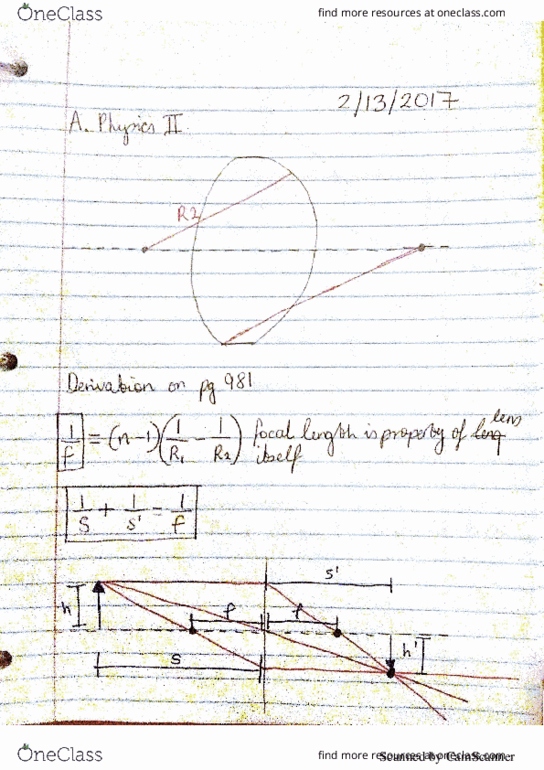 OneClass
find more resources at oneclass.com
2/13/2017
A. Physics II
R2
Derivation on pg 981
1/f = (n-1)(1/R₁ - 1/R₂) focal length is property of lens
itself
1/S + 1/s' = 1/f
s'
h
f f
h'
s
OneClass
find more resources at oneclass.com
Scanned by CamScanner